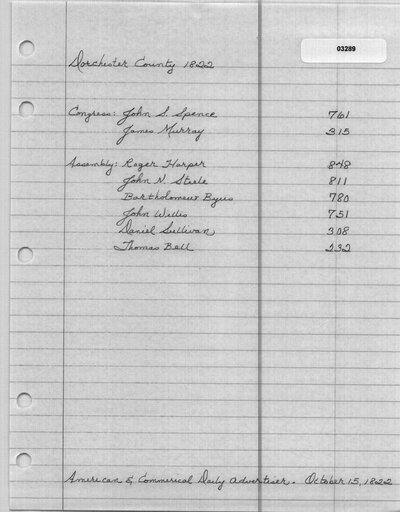 03289
Dorchester County 1822
Congress: John S. Spence 761
James Murray 315
Assembly: Roger Harper 848
John N. Steele 811
Bartholomew Byus 780
John Willis 751
Daniel Sullivan 308
Thomas Bell 232
American & Commerical Daily Advertiser. October 15, 1822